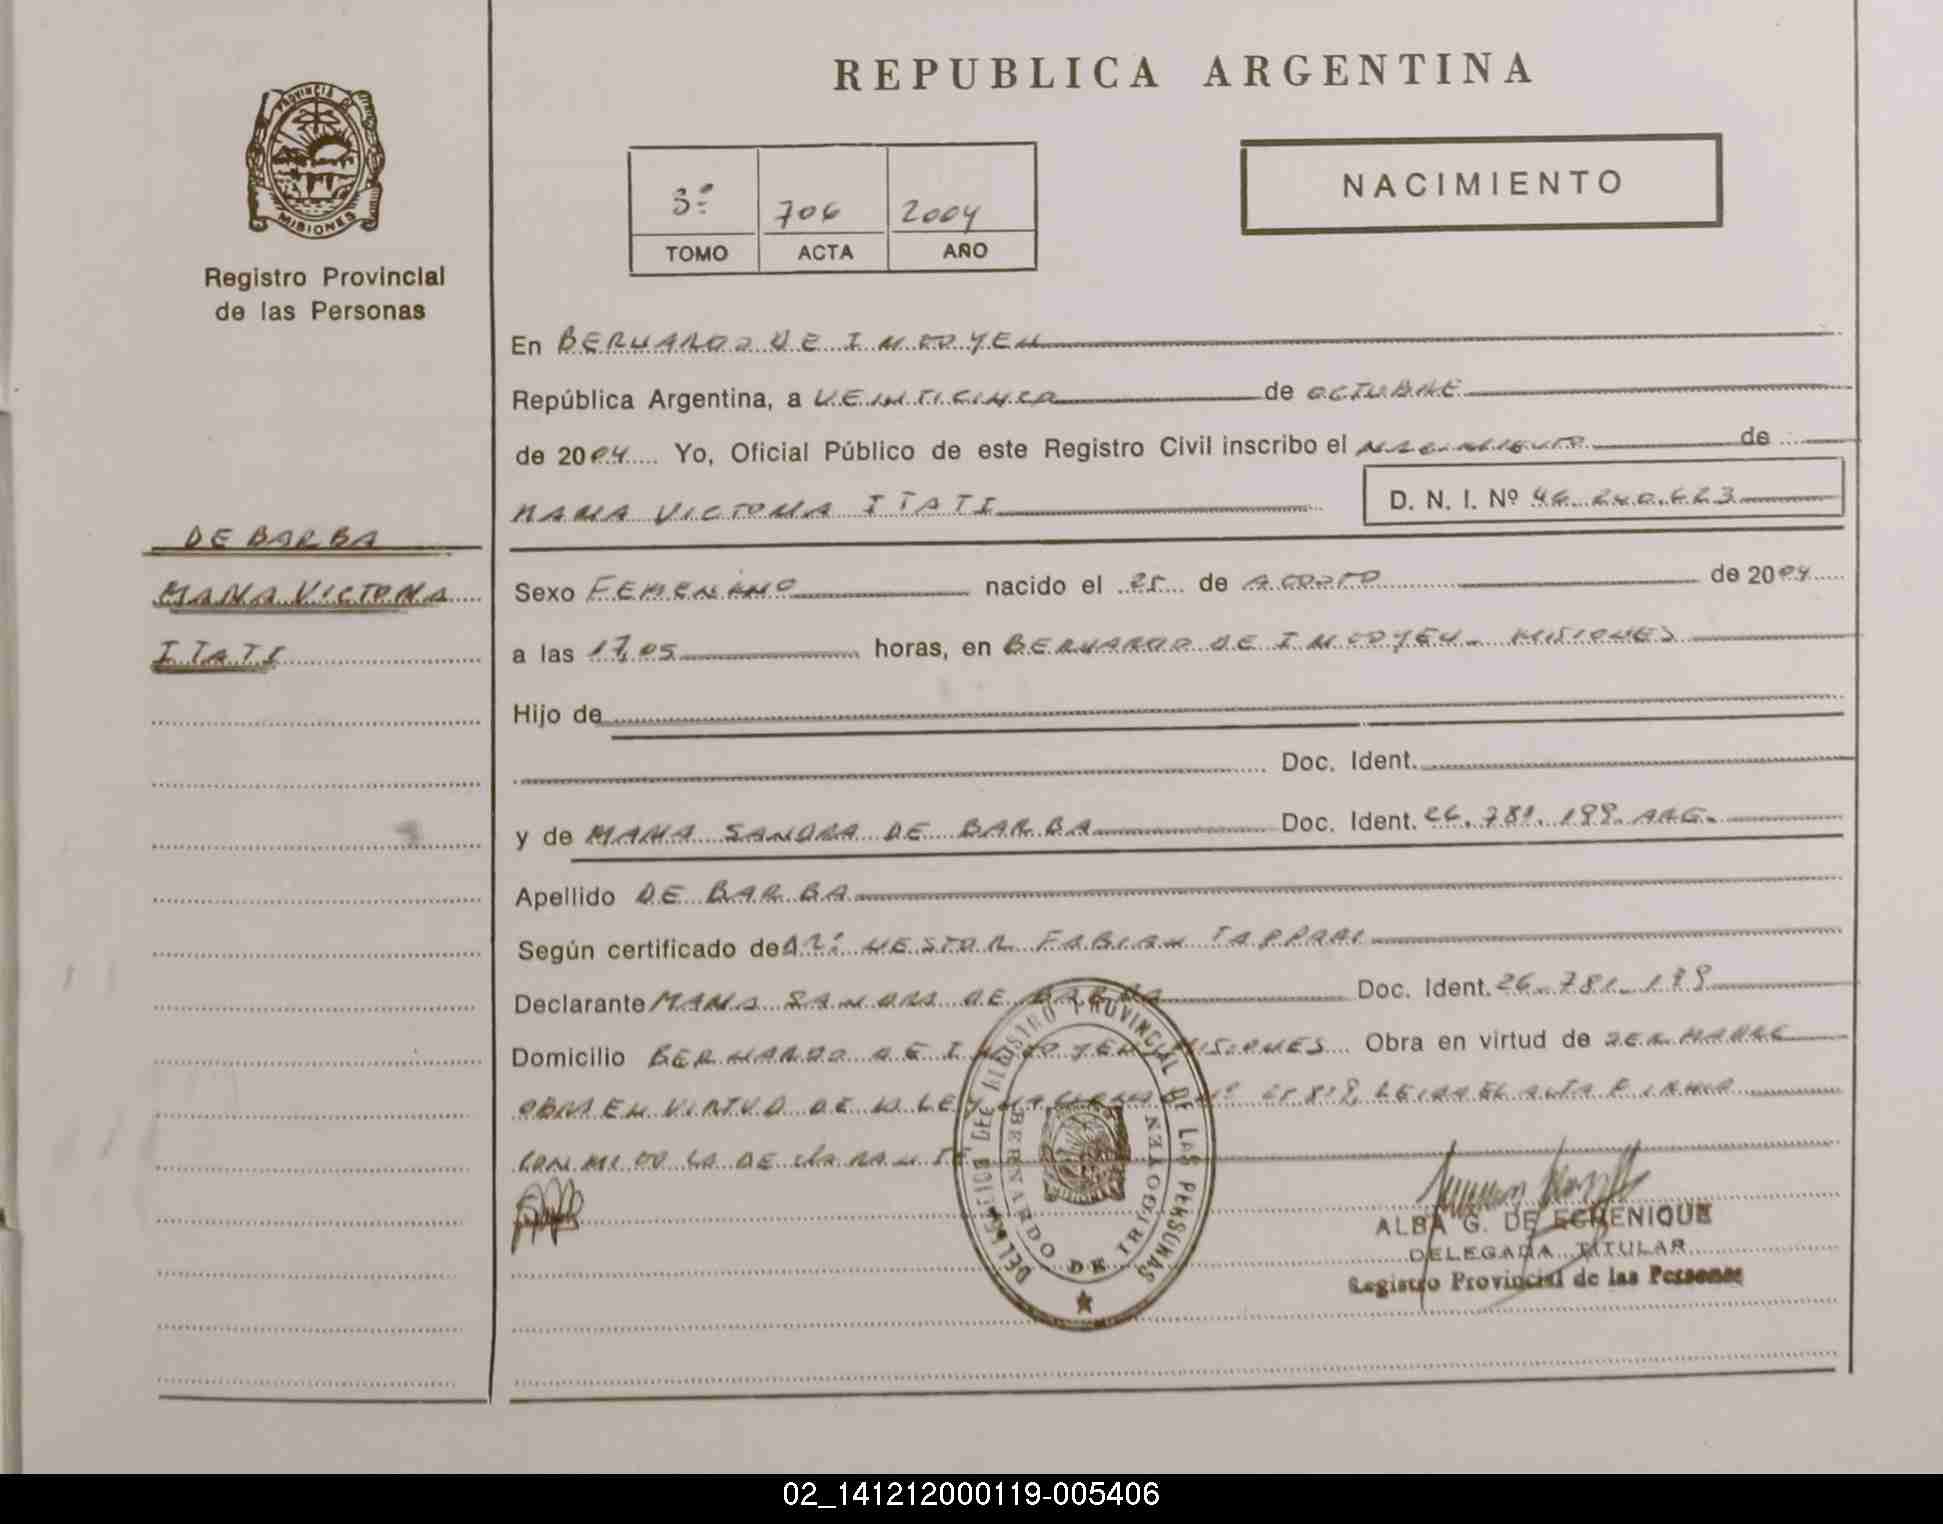 REPUBLICA ARGENTINA
PROVINCIA DE
MISIONES
Registro Provincial
de las Personas
3º 706 2004
TOMO ACTA AÑO
NACIMIENTO
En BERNARDO DE IRIGOYEN
República Argentina, a VEINTICINCO de OCTUBRE
de 2004 Yo, Oficial Público de este Registro Civil inscribo el NACIMIENTO de
MARIA VICTORIA ITATI D. N. I. Nº 46.240.623
DE BARBA
MARIA VICTORIA
ITATI
Sexo FEMENINO nacido el 25 de AGOSTO de 2004
a las 17,05 horas, en BERNARDO DE IRIGOYEN - MISIONES
Hijo de
Doc. Ident.
y de MARIA SANDRA DE BARBA Doc. Ident. 26.781.199. ARG.
Apellido DE BARBA
Según certificado de NESTOR FABIAN
Declarante MARIA SANDRA DE BARBA Doc. Ident. 26.781.199
Domicilio BERNARDO DE IRIGOYEN MISIONES Obra en virtud de SER MADRE
OBRA EN VIRTUD DE LA LEY Nº LEIDA EL ACTA FIRMA
CONMIGO LA DECLARANTE
DELEGACION DEL REGISTRO PROVINCIAL DE LAS PERSONAS
BERNARDO DE IRIGOYEN
ALBA G. DE ECHENIQUE
DELEGADA TITULAR
Registro Provincial de las Personas
02_141212000119-005406